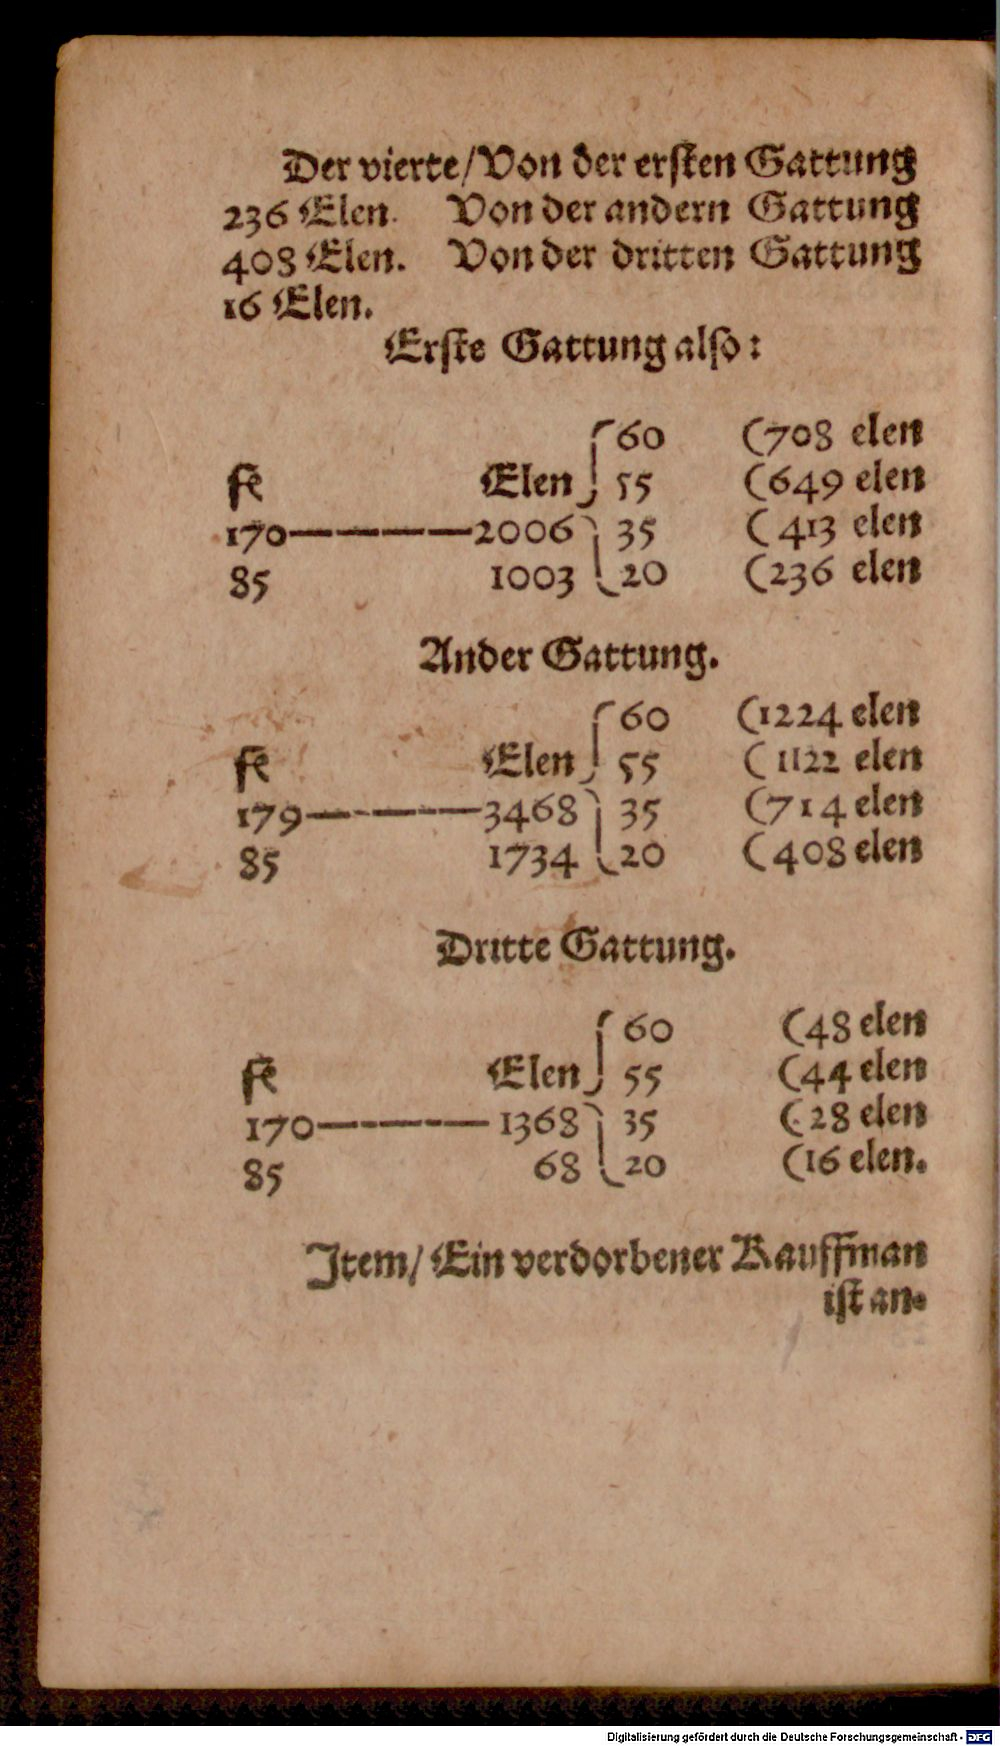 Der vierte/Von der ersten Gattung
236 Elen. Von der andern Gattung
408 Elen. Von der dritten Gattung
16 Elen.
Erste Gattung also:
60 (708 elen
fl Elen 55 (649 elen
170 2006 35 (413 elen
85 1003 20 (236 elen
Ander Gattung.
60 (1224 elen
fl Elen 55 (1122 elen
179 3468 35 (714 elen
85 1734 20 (408 elen
Dritte Gattung.
60 (48 elen
fl Elen 55 (44 elen
170 1368 35 (28 elen
85 68 20 (16 elen.
Item/ Ein verdorbener Kauffman
ist an-
Digitalisierung gefördert durch die Deutsche Forschungsgemeinschaft - DFG